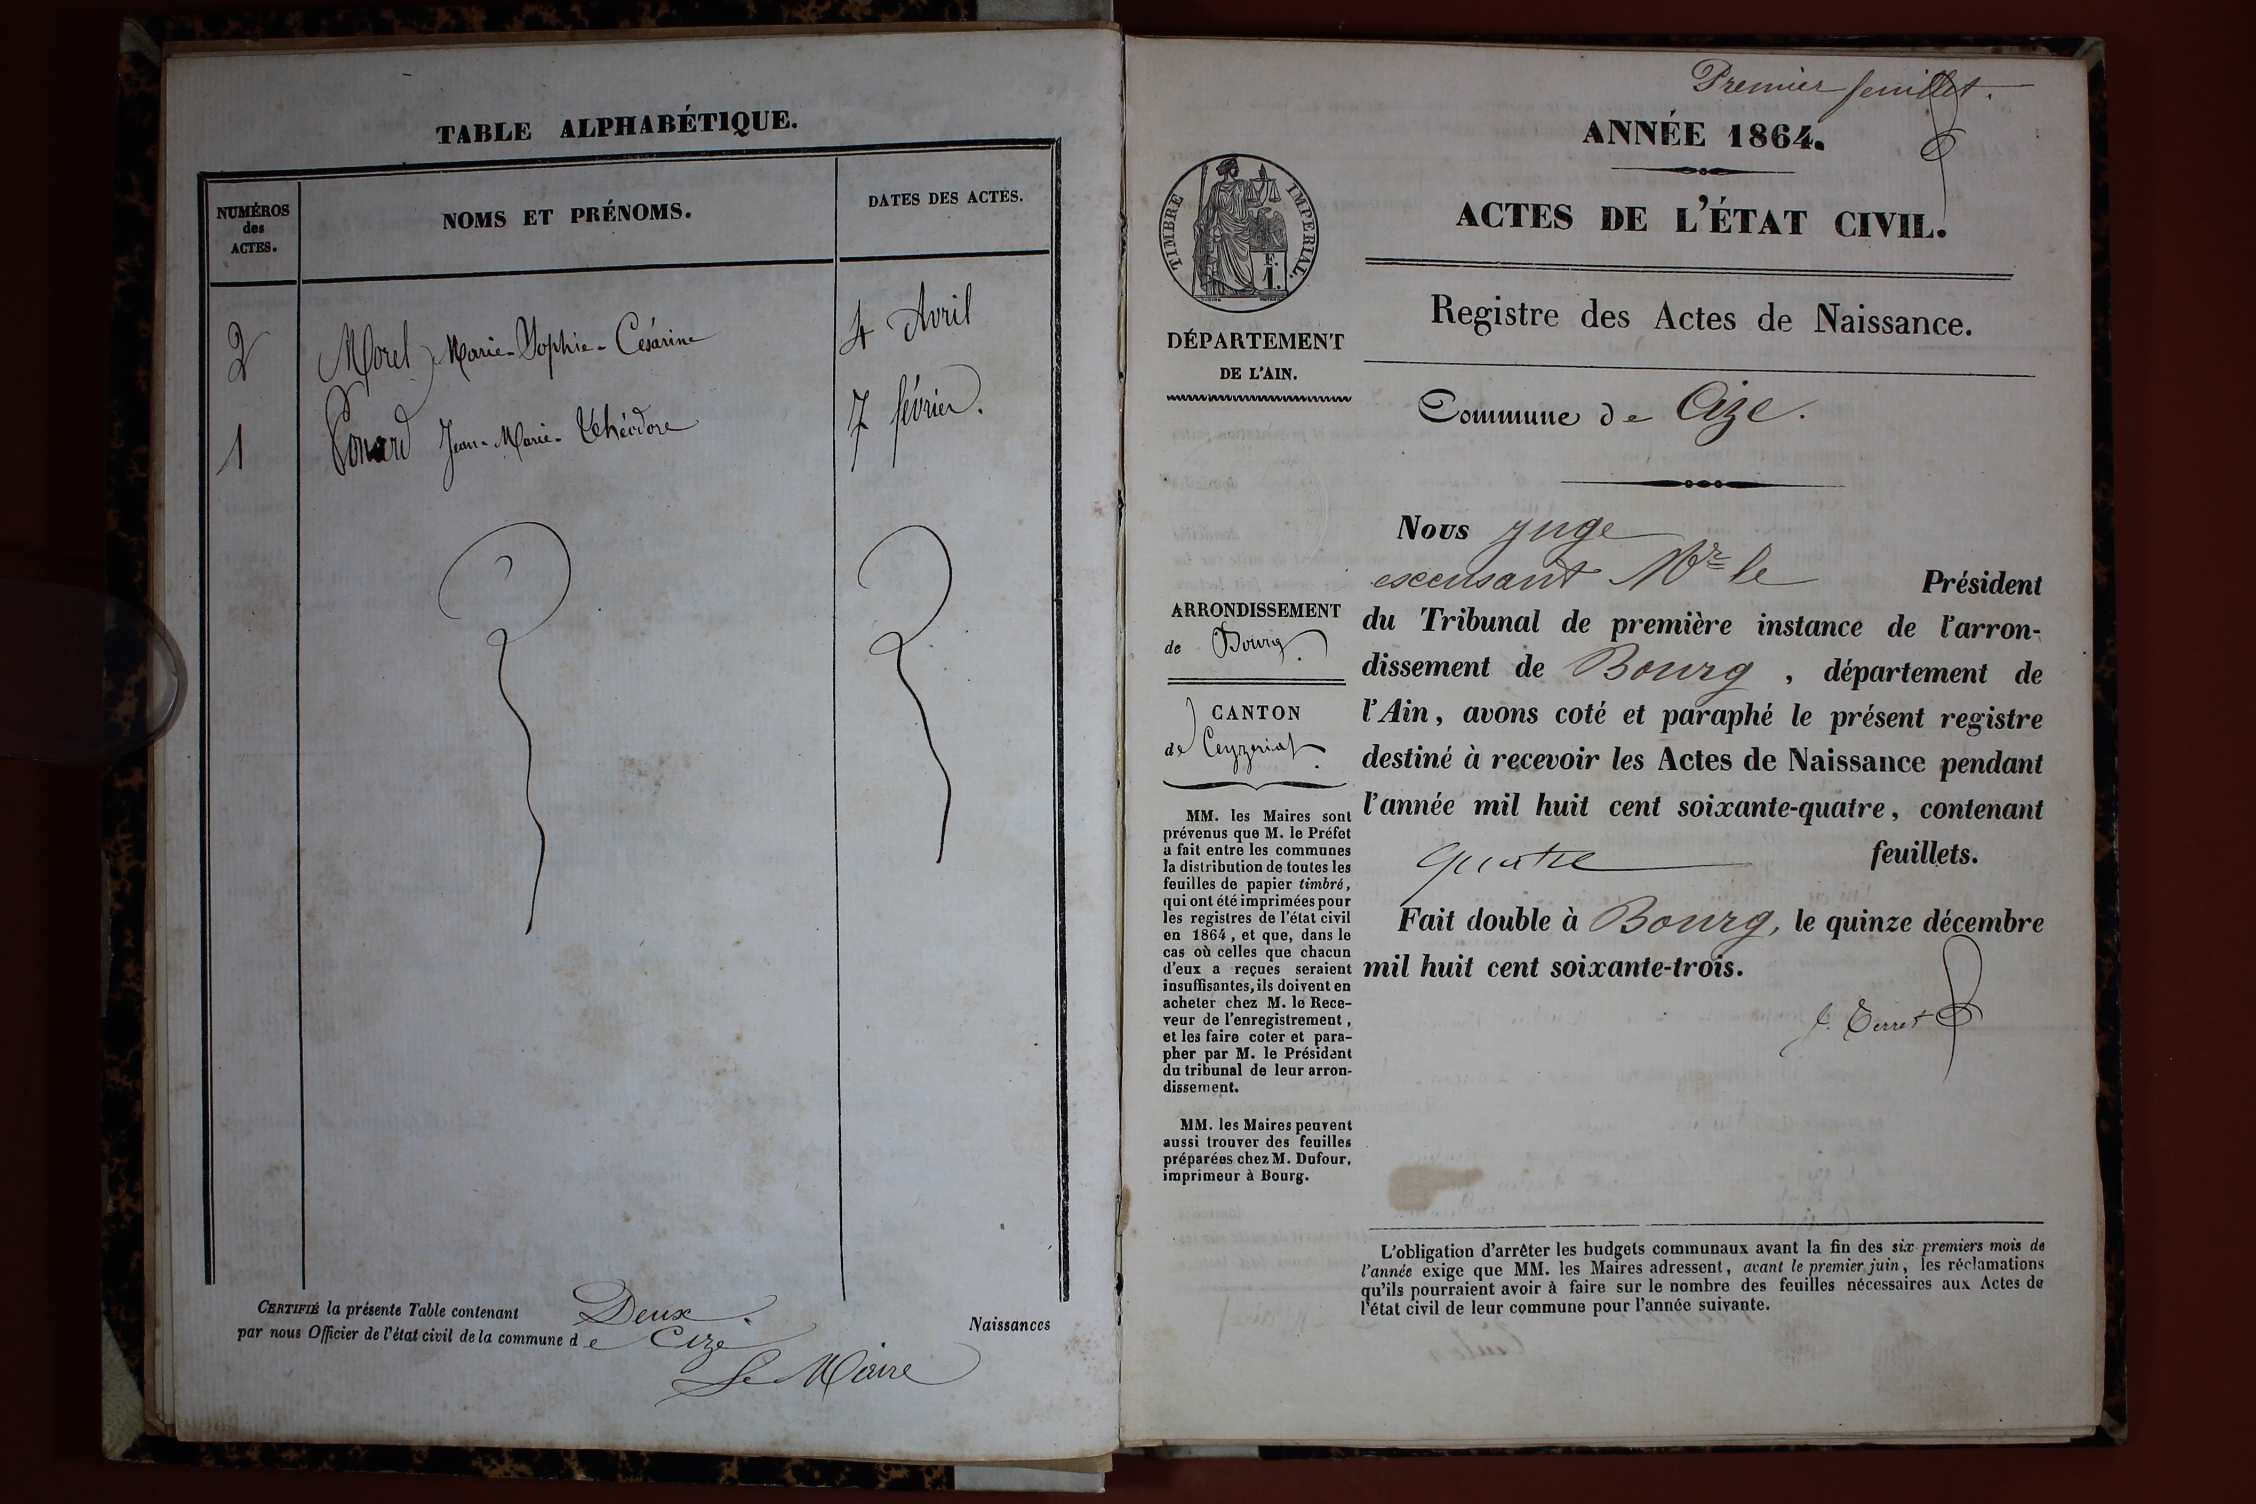 TABLE ALPHABÉTIQUE.
NUMÉROS
des
ACTES.
NOMS ET PRÉNOMS.
DATES DES ACTES.
2 Morel Marie-Sophie-Césarine 4 Avril
1 Ponard Jean-Marie-Théodore 7 février.
CERTIFIÉ la présente Table contenant Deux. Naissances
par nous Officier de l'état civil de la commune de Cize
Le Maire
Premier feuillet.
ANNÉE 1864.
ACTES DE L'ÉTAT CIVIL.
TIMBRE IMPERIAL.
F.
1.
DÉPARTEMENT
DE L'AIN.
Registre des Actes de Naissance.
Commune de Cize.
ARRONDISSEMENT
de Bourg.
CANTON
de Ceyzeriat.
MM. les Maires sont
prévenus que M. le Préfet
a fait entre les communes
la distribution de toutes les
feuilles de papier timbré,
qui ont été imprimées pour
les registres de l'état civil
en 1864, et que, dans le
cas où celles que chacun
d'eux a reçues seraient
insuffisantes, ils doivent en
acheter chez M. le Rece-
veur de l'enregistrement,
et les faire coter et para-
pher par M. le Président
du tribunal de leur arron-
dissement.
MM. les Maires peuvent
aussi trouver des feuilles
préparées chez M. Dufour,
imprimeur à Bourg.
Nous juge
excusant Mr le Président
du Tribunal de première instance de l'arron-
dissement de Bourg, département de
l'Ain, avons coté et paraphé le présent registre
destiné à recevoir les Actes de Naissance pendant
l'année mil huit cent soixante-quatre, contenant
quatre feuillets.
Fait double à Bourg, le quinze décembre
mil huit cent soixante-trois.
L'obligation d'arrêter les budgets communaux avant la fin des six premiers mois de
l'année exige que MM. les Maires adressent, avant le premier juin, les réclamations
qu'ils pourraient avoir à faire sur le nombre des feuilles nécessaires aux Actes de
l'état civil de leur commune pour l'année suivante.